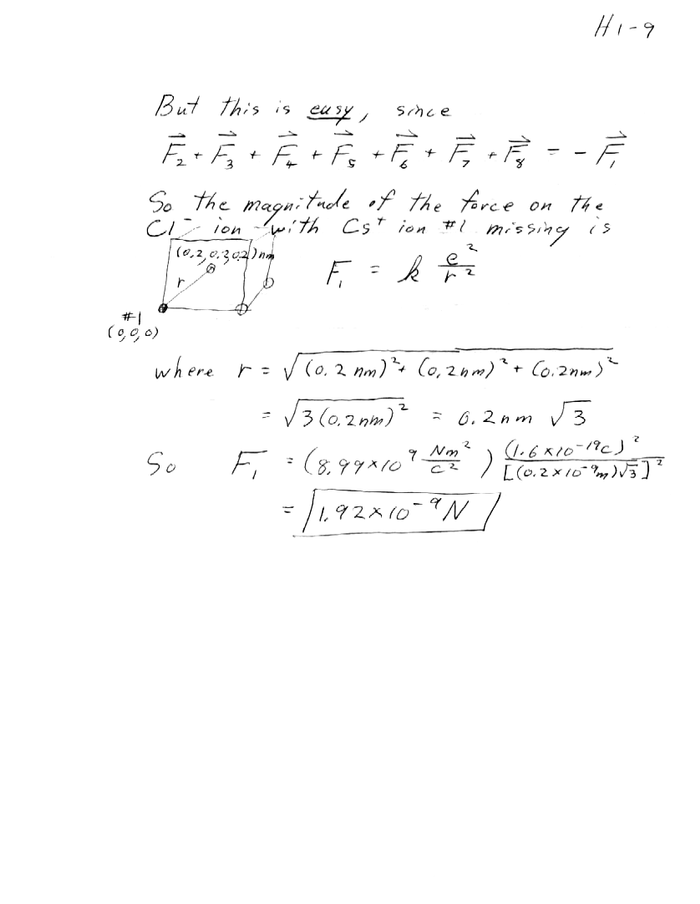 H1-9
But this is easy, since
F⃗₂ + F⃗₃ + F⃗₄ + F⃗₅ + F⃗₆ + F⃗₇ + F⃗₈ = - F⃗₁
So the magnitude of the force on the
Cl⁻ ion with Cs⁺ ion #1 missing is
(0.2,0.2,0.2)nm
r
F₁ = k e²/r²
#1
(0,0,0)
where r = √((0.2 nm)² + (0.2nm)² + (0.2nm)²)
= √(3(0.2nm)²) = 0.2nm √3
So F₁ = (8.99×10⁹ Nm²/C²) (1.6×10⁻¹⁹C)²/[(0.2×10⁻⁹m)√3]²
= 1.92×10⁻⁹N